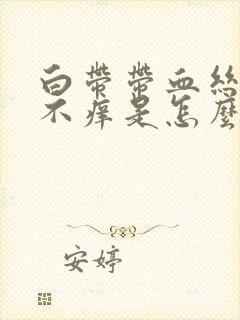 白带带血丝
不痒是怎麽
安婷